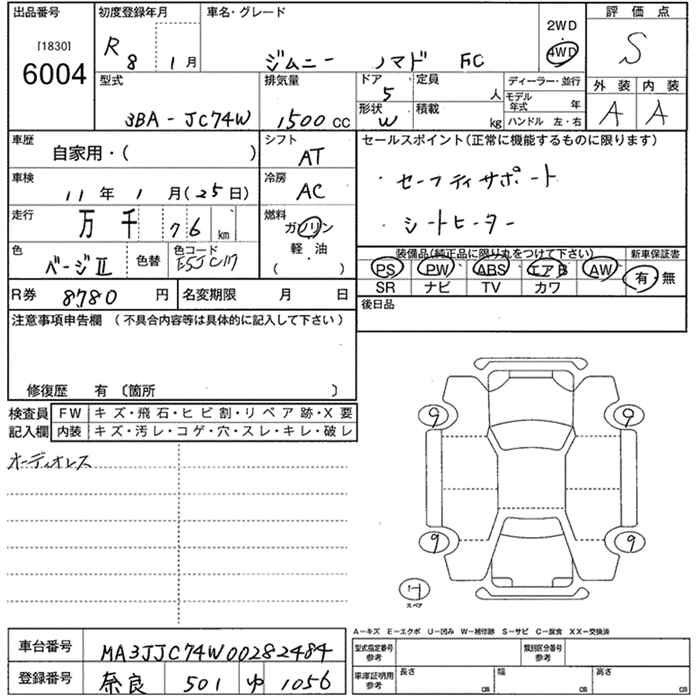 出品番号
[1830]
6004
初度登録年月
R 8 年 1 月
車名・グレード
ジムニー ノマド FC
2WD
4WD
評価点
S
外装 内装
A A
型式
3BA-JC74W
排気量
1500 CC
ドア
5
形状
W
定員
人
積載
kg
ディーラー・並行
モデル年式 年
ハンドル 左・右
車歴
自家用・( )
シフト
AT
車検
11年 1月(25日)
冷房
AC
走行
万 千 76 km
燃料
ガソリン
軽・油
( )
色
ベージⅡ
色替
色コード
R券 8780 円
名変期限 月 日
セールスポイント(正常に機能するものに限ります)
・セーフティサポート
・シートヒーター
装備品(純正品に限り丸をつけて下さい)
PS PW ABS エアB AW
SR ナビ TV カワ
新車保証書
有・無
後日品
注意事項申告欄(不具合内容等は具体的に記入して下さい)
修復歴 有 〔箇所 〕
検査員記入欄
FW キズ・飛石・ヒビ割・リペア跡・X要
内装 キズ・汚レ・コゲ・穴・スレ・キレ・破レ
オーディオレス
9 9
9 9
スペア
A-キズ E-エクボ U-凹み W-補修跡 S-サビ C-腐食 XX-交換済
車台番号 MA3JJC74W00282484
登録番号 奈良 501 ゆ 1056
型式指定番号
参考
類別区分番号
参考
車庫証明用
参考
長さ cm
幅 cm
高さ cm